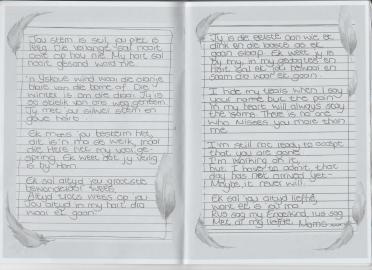 Jou stem is stil, jou plek is
leeg. Die verlange sal nooit
ooit op hou nie. My hart sal
nooit gesond word nie.
'n Yskoue wind waai die oranje
blare van die bome af. Die
winter is om die draai. Jy is
so skielik van ons weg geneem
Jy met jou silwer stem en
goue hart.
Ek mees jou besterm het,
dit is 'n ma se werk, maar
die Here het my voor ge-
spring. Ek weet dat jy veilig
is by Hom.
Ek sal altyd jou grootste
bewonderaar wees,
Altyd trots wees op jou
Jou altyd in my hart dra
waar ek gaan.
Jy is die eerste aan wie ek
dink en die laaste as ek
gaan slaap. Ek weet jy is
by my, in my gedagtes en
hart sal ek jou bewaar en
saam dra waar ek gaan.
I hide my tears when I say
your name but the pain
in my heart will always stay
the same. There is no one
who misses you more than
me.
I'm still not ready to accept
that you are gone.
I'm working on it,
but I have to admit, that
day has not arrived yet-
Maybe it never will.
Ek sal jou altyd liefhê,
want ek is jou ma.
Rus sag my Engelkind, rus sag
Met al my liefde Mams